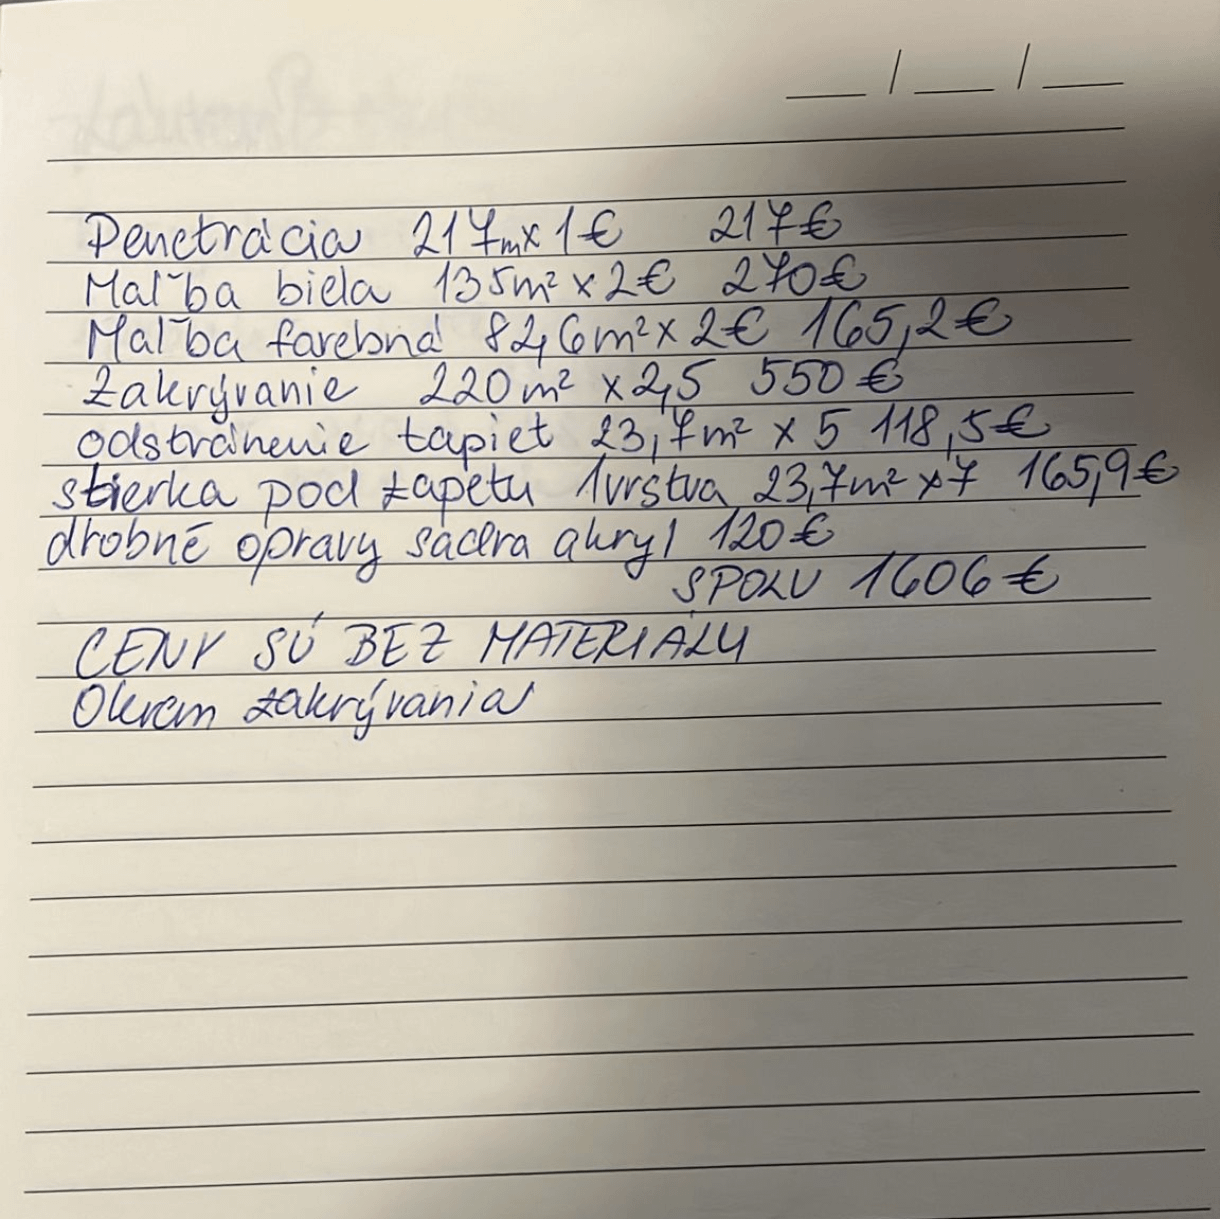 Penetrácia 217m x 1€ 217€
Maľba biela 135m² x 2€ 270€
Maľba farebná 82,6m² x 2€ 165,2€
Zakrývanie 220m² x 2,5 550€
odstránenie tapiet 23,7m² x 5 118,5€
stierka pod tapetu 1vrstva 23,7m² x 7 165,9€
drobné opravy sadra akryl 120€
SPOLU 1606€
CENY SÚ BEZ MATERIÁLU
Okrem zakrývania